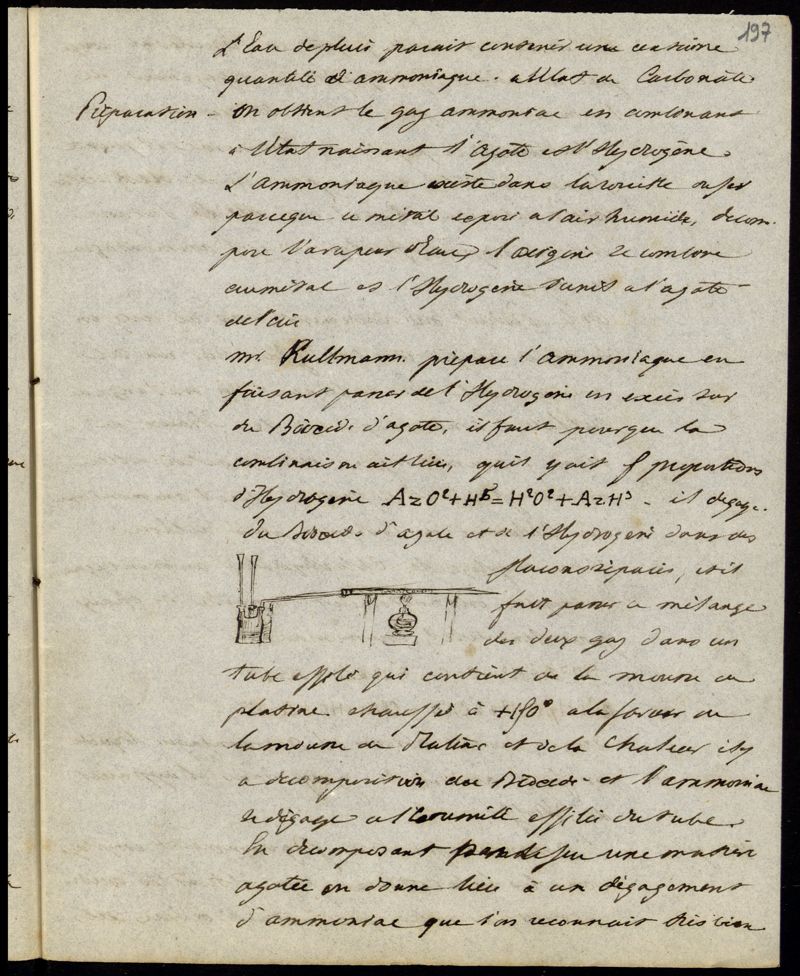 197
L'Eau de pluie parait contenir une certaine
quantité d'ammoniaque. a l'état de Carbonate
Préparation - On obtient le gaz ammoniac en combinant
a l'Etat naissant l'azote et l'Hydrogène.
L'Ammoniaque existe dans la rouille du fer
parceque ce métal exposé a l'air humide, décom-
pose la vapeur d'Eau, l'oxigene se combine
au métal et l'Hydrogene s'unit a l'azote
de l'air
mr. Kullmann. prépare l'ammoniaque en
faisant passer de l'Hydrogene en excès sur
du Bioxide d'azote, il faut pourque la
combinaison ait lieu, qu'il y ait 5 proportions
d'Hydrogene AzO²+H⁵=H²O²+AzH³ - il dégage
du Bioxide d'azote et de l'Hydrogene dans des
flacons séparés, et il
fait passer ce mélange
des deux gaz dans un
tube effilé qui contient de la mousse de
platine chauffé à +150° a la faveur de
la mousse de Platine et de la Chaleur il y
a decomposition du Bioxide et l'ammoniac
se dégage a l'extremité effilée du tube.
En decomposant par le feu une matiere
azotée on donne lieu à un dégagement
d'ammoniac que l'on reconnait très bien